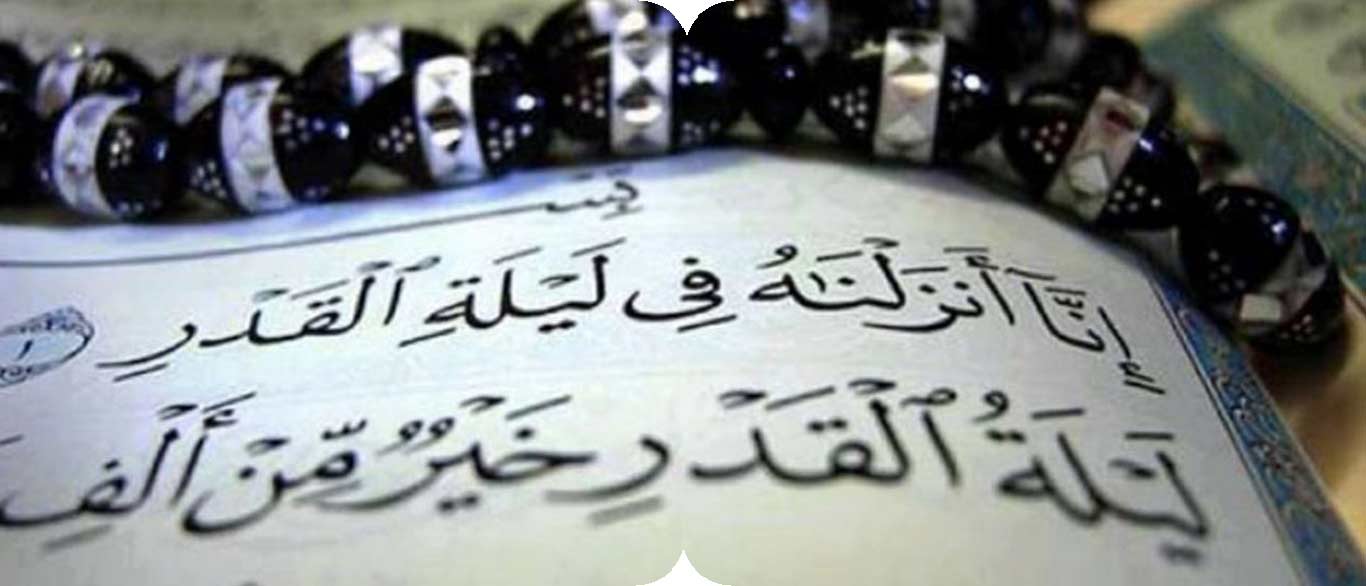 إِنَّآ أَنزَلْنَٰهُ فِى لَيْلَةِ ٱلْقَدْرِ ١
لَيْلَةُ ٱلْقَدْرِ خَيْرٌ مِّنْ أَلْفِ